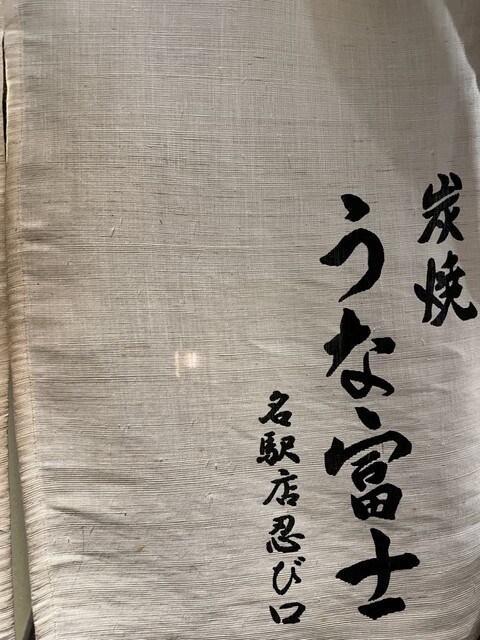 炭焼
うな富士
名駅店忍び口